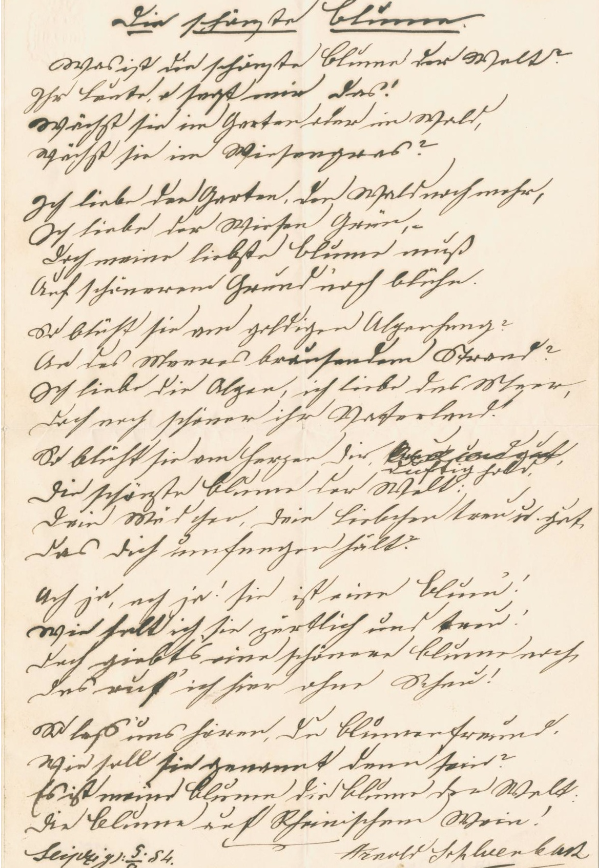 Die schönste Blume.
Was ist die schönste Blume der Welt?
Ihr Leute, o sagt mir das!
Wächst sie im Garten oder im Wald,
Wächst sie im Wiesengras?
Ich liebe den Garten, den Wald noch mehr,
Ich liebe der Wiesen Grün,
Doch meine liebste Blume muß
Auf schönerem Grund noch blühn.
So blüht sie am goldigen Alpenhang?
An des Meeres brausendem Strand?
Ich liebe die Alpen, ich liebe das Meer,
Doch noch schöner ihr Vaterland!
So blüht sie am Herzen dir,
duftig hold,
Die schönste Blume der Welt:
Dein Mädchen, dein Liebchen treu u. gut,
Das dich umfangen hält?
Ach ja, ach ja! sie ist eine Blum'!
Wie halt ich sie zärtlich und treu!
Doch giebt's eine schönere Blume noch,
Das ruf ich hier ohne Scheu!
So lass' uns hören, du Blumenfreund,
Wie soll sie genannt denn sein?
Es ist meine Blume die Blume der Welt:
Die Blume auf Rheinischem Wein!
Leipzig: 84.
Arnold